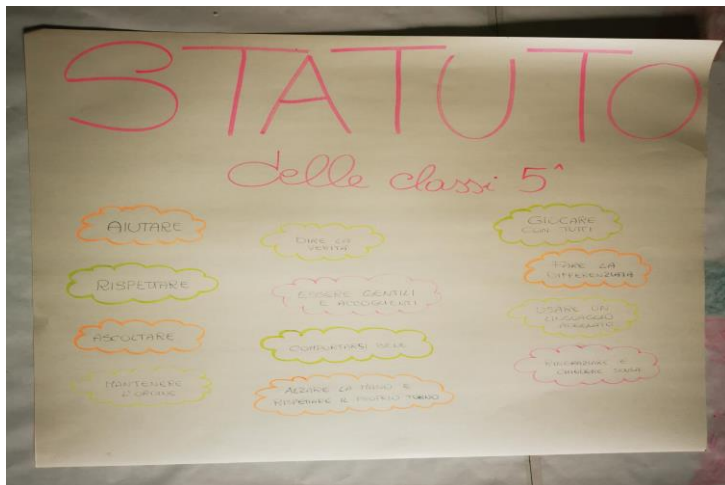 STATUTO
delle classi 5^
AIUTARE
RISPETTARE
ASCOLTARE
MANTENERE
L'ORDINE
DIRE LA
VERITÀ
ESSERE GENTILI
E ACCOGLIENTI
COMPORTARSI BENE
ALZARE LA MANO E
RISPETTARE IL PROPRIO TURNO
GIOCARE
CON TUTTI
FARE LA
DIFFERENZIATA
USARE UN
LINGUAGGIO
ADEGUATO
RINGRAZIARE E
CHIEDERE SCUSA